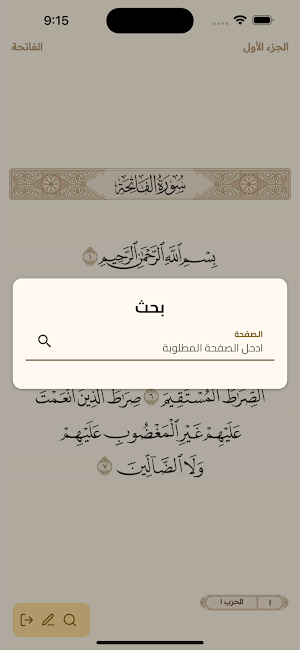 9:15
الجزء الأول
الفاتحة
سُورَةُ الْفَاتِحَةِ
بِسْمِ اللَّهِ الرَّحْمَٰنِ الرَّحِيمِ ١
بحث
الصفحة
ادخل الصفحة المطلوبة
الصِّرَاطَ الْمُسْتَقِيمَ ٦ صِرَاطَ الَّذِينَ أَنْعَمْتَ
عَلَيْهِمْ غَيْرِ الْمَغْضُوبِ عَلَيْهِمْ
وَلَا الضَّالِّينَ ٧
١ الحزب ١